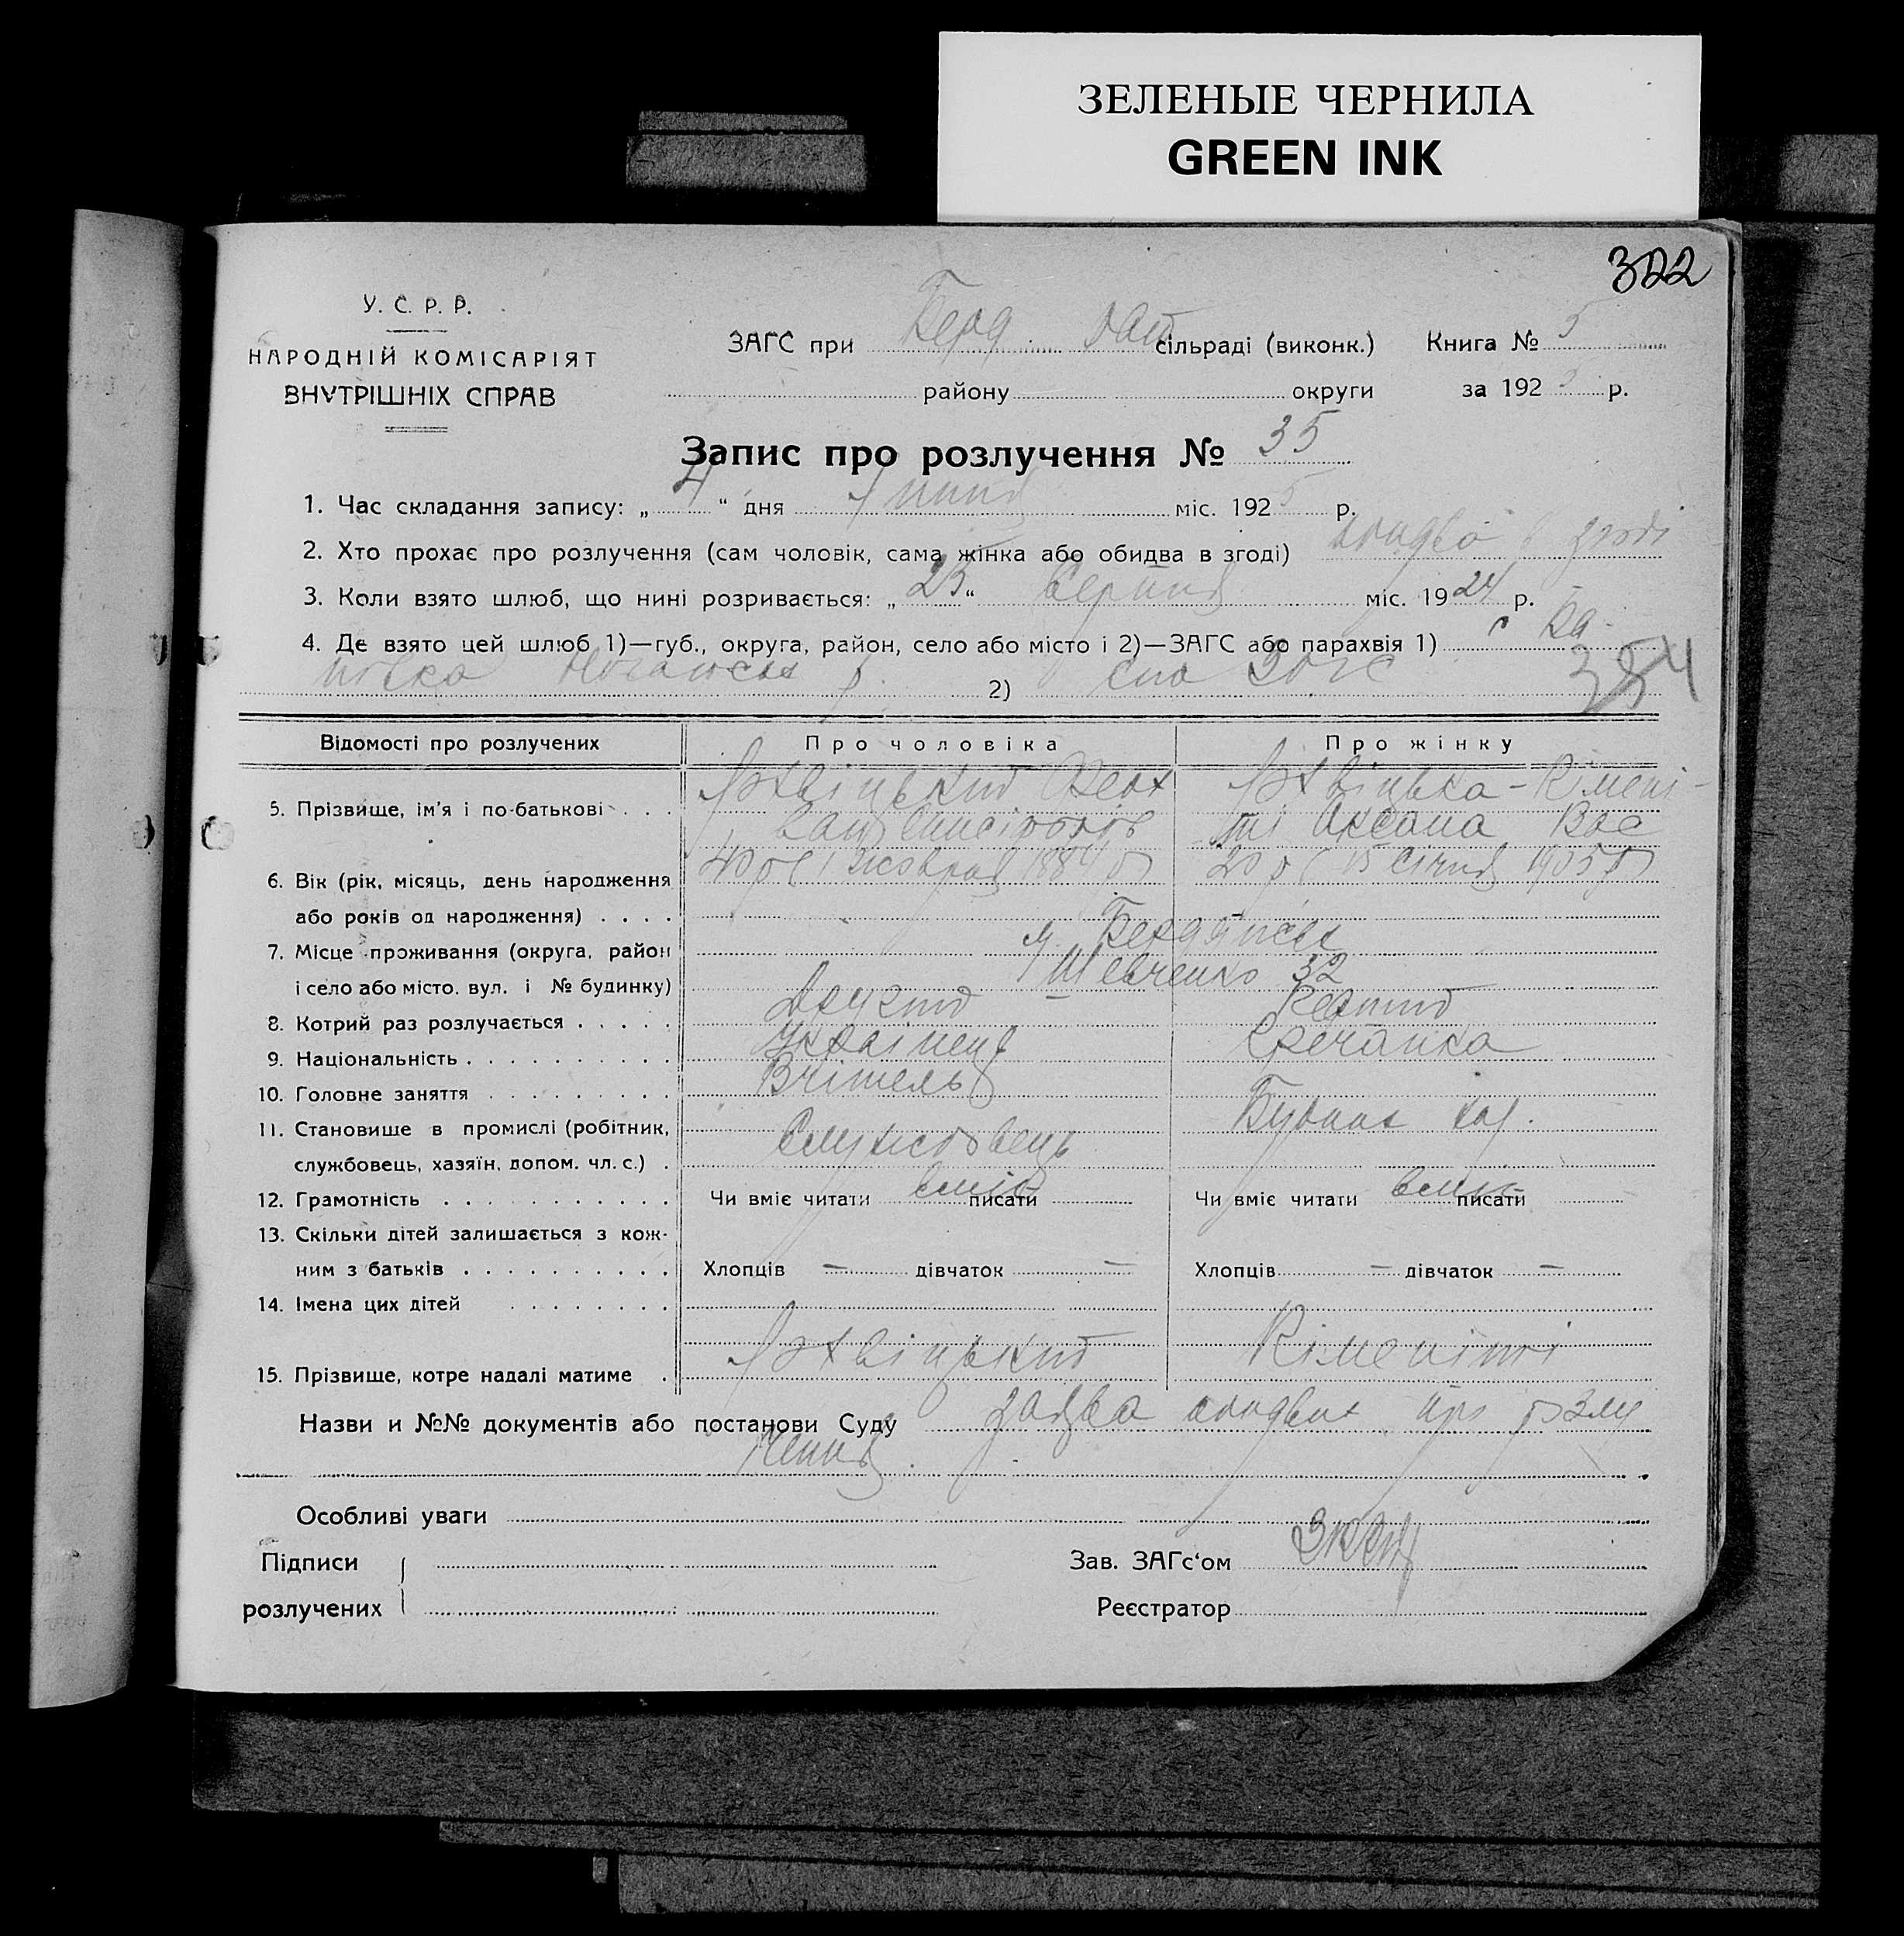 ЗЕЛЕНЫЕ ЧЕРНИЛА
GREEN INK
322
У. С. Р. Р.
НАРОДНІЙ КОМІСАРІЯТ
ВНУТРІШНІХ СПРАВ
ЗАГС при Берд сільраді (виконк.) Книга № 5
району округи за 192 5 р.
Запис про розлучення № 35
1. Час складання запису: „ 4 “ дня Липня міс. 192 5 р.
2. Хто прохає про розлучення (сам чоловік, сама жінка або обидва в згоді) обидва в згоді
3. Коли взято шлюб, що нині розривається: „ 25 “ Серпня міс. 19 24 р.
4. Де взято цей шлюб 1)—губ., округа, район, село або місто і 2)—ЗАГС або парахвія 1)
2) ЗАГС
354
Відомості про розлучених Про чоловіка Про жінку
5. Прізвище, ім'я і по-батькові . . . Лохвіцький Лохвіцька - Кімені-
ті Оксана Вас
6. Вік (рік, місяць, день народження 40 р ( 1 жовтня 1884 р) 20 р ( 15 січня 1905 р)
або років од народження) . . . .
7. Місце проживання (округа, район м. Бердянськ
і село або місто, вул. і № будинку) Шевченко 32
8. Котрий раз розлучається . . . . . Другий Первий
9. Національність . . . . . . . . . . Українець Гречанка
10. Головне заняття . . . . . . . . . Вчітель
11. Становище в промислі (робітник,
службовець, хазяїн, допом. чл. с.) . Службовець
12. Грамотність . . . . . . . . . . . Чи вміє читати вміє писати Чи вміє читати вміє писати
13. Скільки дітей залишається з кож-
ним з батьків . . . . . . . . . . Хлопців — дівчаток — Хлопців — дівчаток —
14. Імена цих дітей . . . . . . . .
15. Прізвище, котре надалі матиме . Лохвіцький Кіменіті
Назви и №№ документів або постанови Суду заява обидвих про розлу
чення.
Особливі уваги
Підписи Зав. ЗАГс‘ом
розлучених Реєстратор